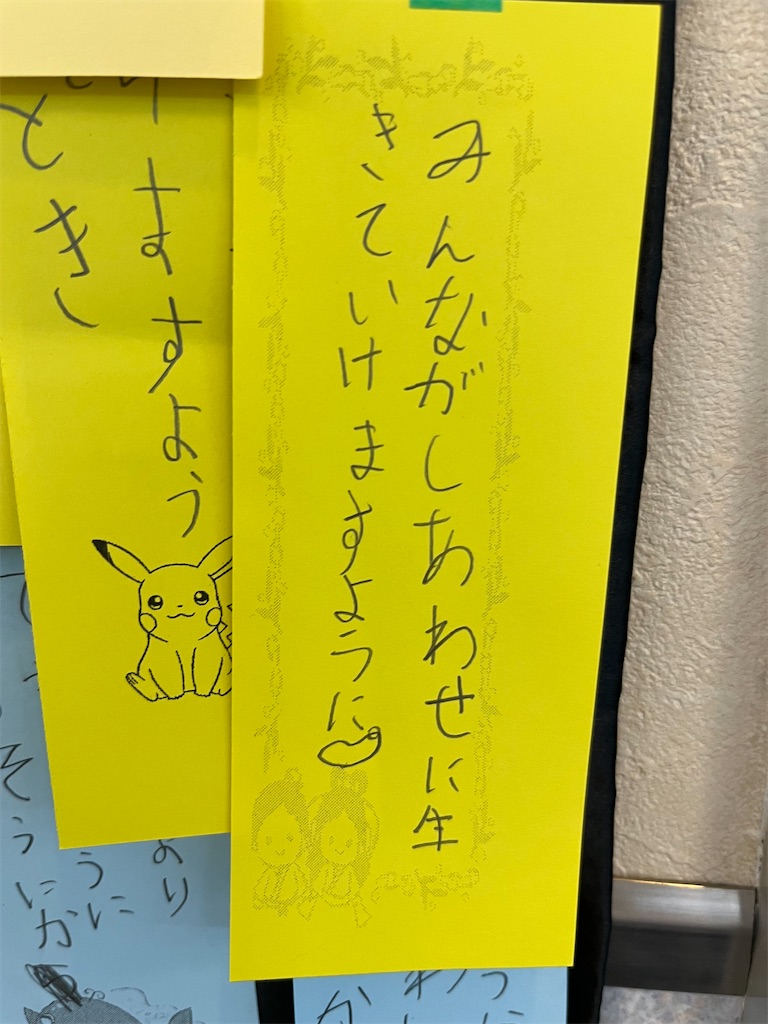 みんながしあわせに生
きていけますように
ますよう
とき
より
うに
そうにか